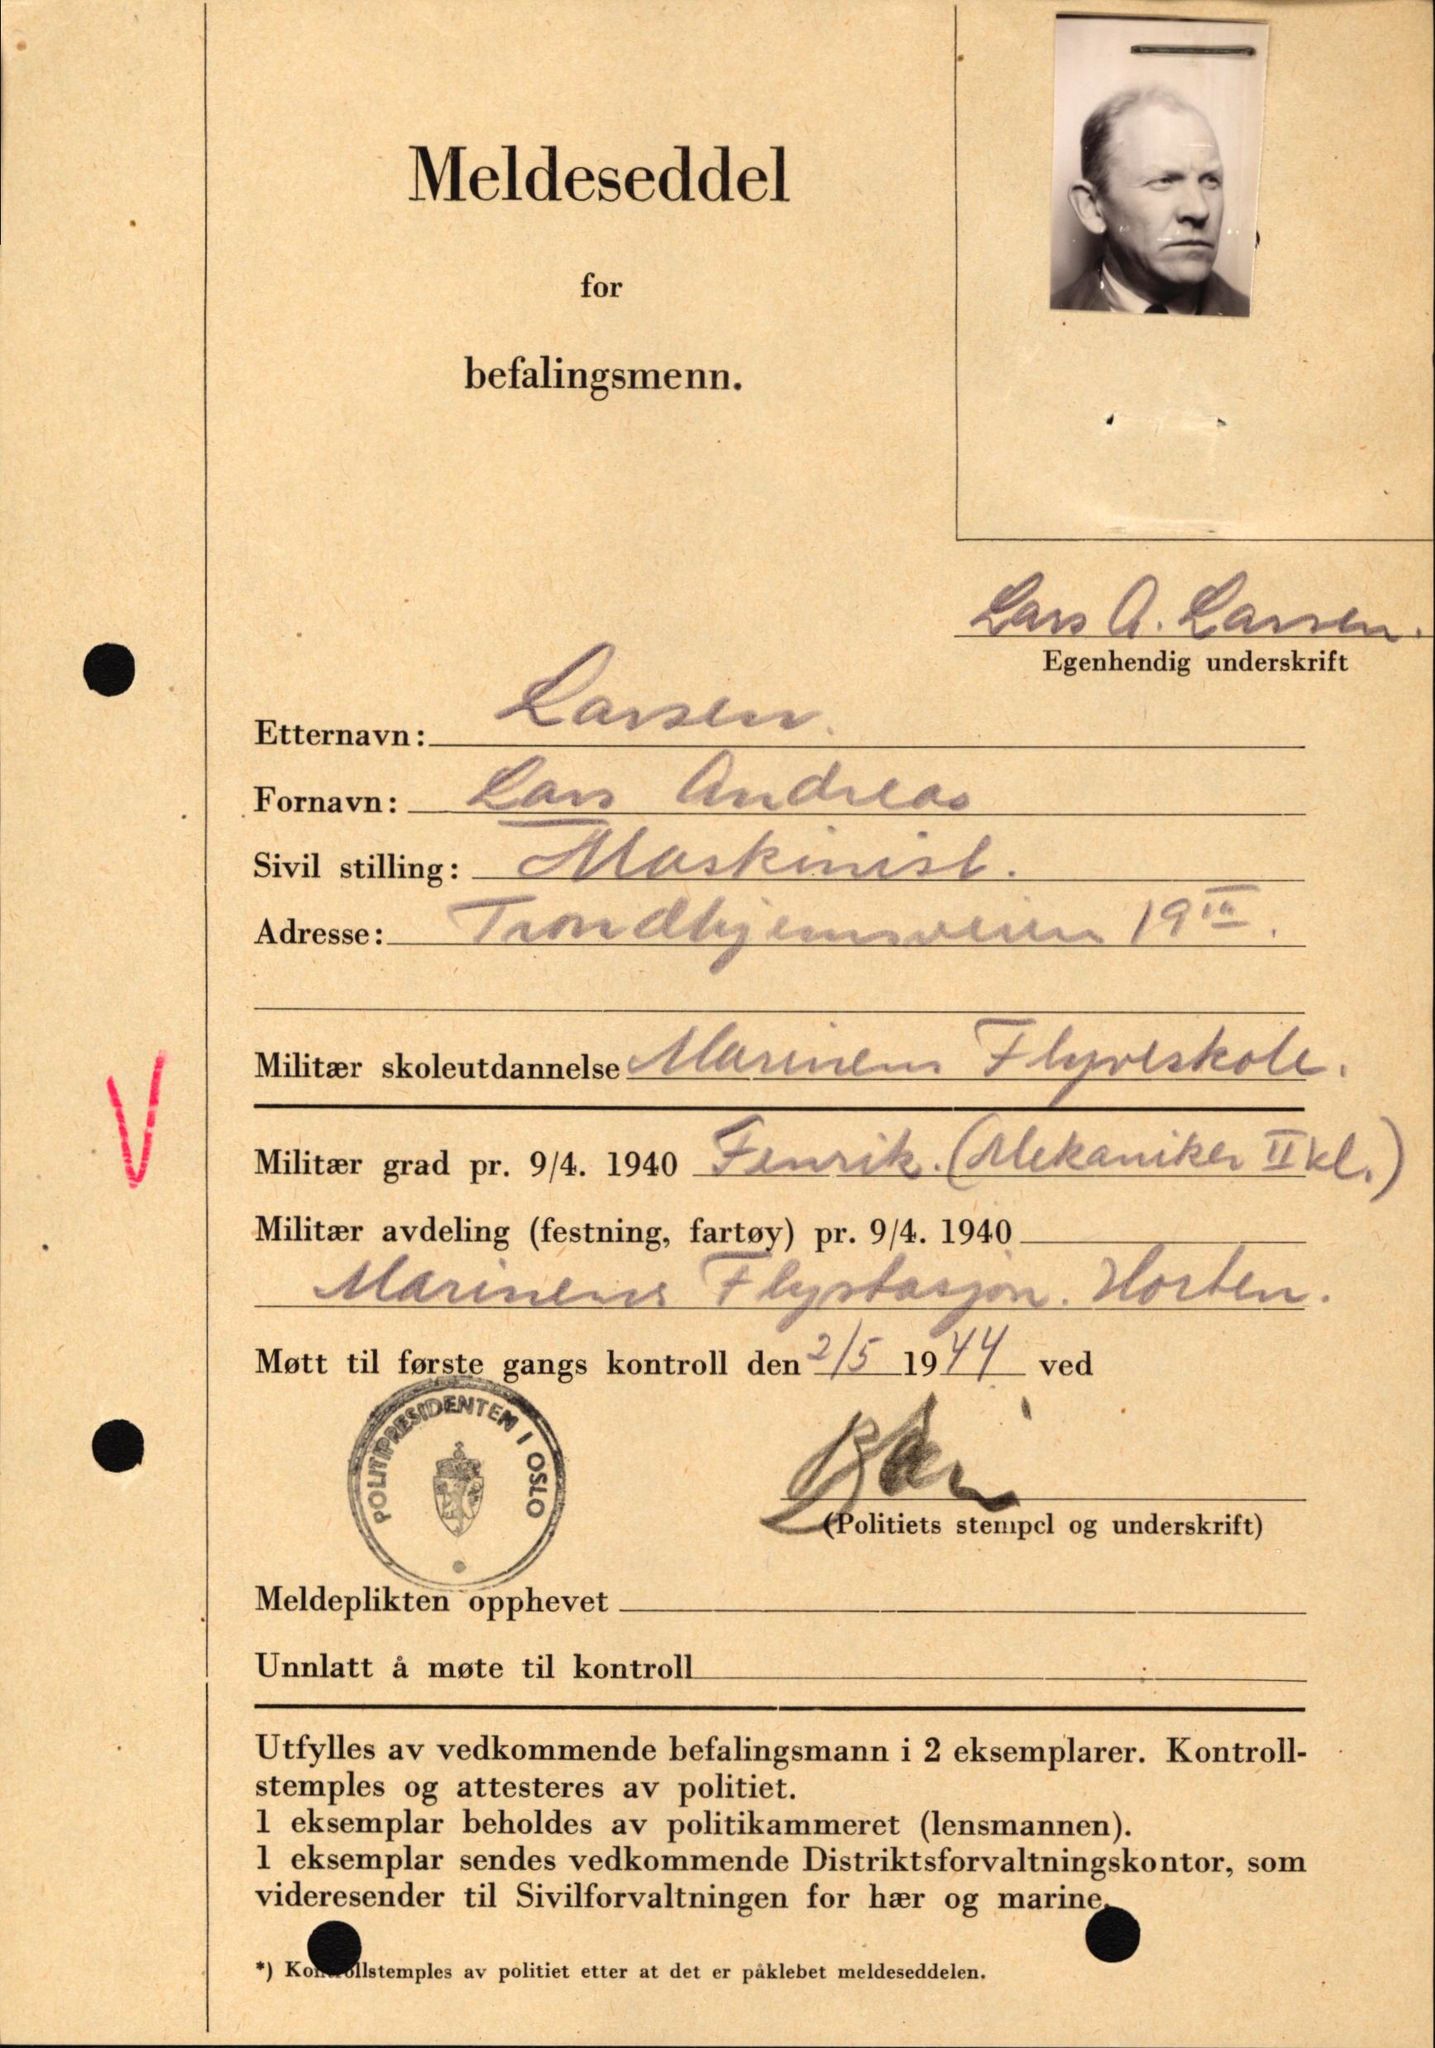 Meldeseddel
for
befalingsmenn.
Lars A. Larsen.
Egenhendig underskrift
Etternavn: Larsen.
Fornavn: Lars Andreas
Sivil stilling: Maskinist.
Adresse: Trondhjemsveien 19 III.
Militær skoleutdannelse Marinens Flyveskole.
Militær grad pr. 9/4. 1940 Fenrik. (Mekaniker II kl.)
Militær avdeling (festning, fartøy) pr. 9/4. 1940
Marinens Flystasjon. Horten.
Møtt til første gangs kontroll den 2/5 1944 ved
POLITIPRESIDENTEN I OSLO
(Politiets stempel og underskrift)
Meldeplikten opphevet
Unnlatt å møte til kontroll
Utfylles av vedkommende befalingsmann i 2 eksemplarer. Kontroll-
stemples og attesteres av politiet.
1 eksemplar beholdes av politikammeret (lensmannen).
1 eksemplar sendes vedkommende Distriktsforvaltningskontor, som
videresender til Sivilforvaltningen for hær og marine.
*) Kontrollstemples av politiet etter at det er påklebet meldeseddelen.